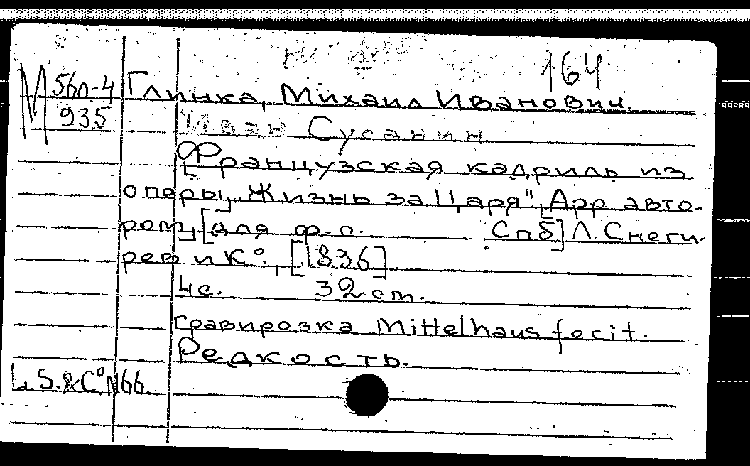 164
М 56л-4
935
Глинка, Михаил Иванович.
Иван Сусанин
Французская кадриль из
оперы „Жизнь за Царя", Арр. авто-
ром, [для ф.-п. Спб] Л. Снеги-
рев и К°, [1836]
4с. 32 cm.
Гравировка Mittelhaus fecit.
Редкость.
L. S. & C° N 66